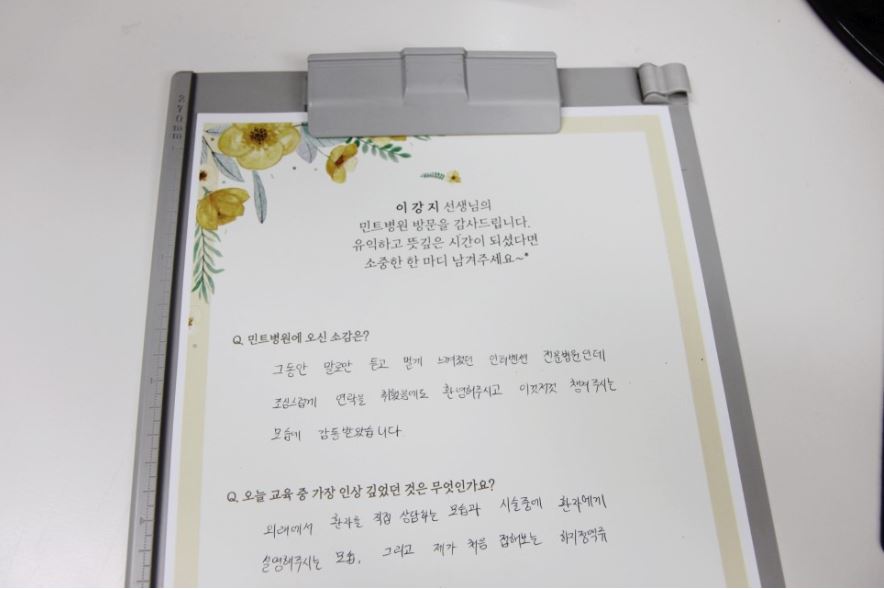 270mm
이강지 선생님의
민트병원 방문을 감사드립니다.
유익하고 뜻깊은 시간이 되셨다면
소중한 한 마디 남겨주세요~*
Q. 민트병원에 오신 소감은?
그동안 말로만 듣고 멀게 느껴졌던 인터벤션 전문병원인데
조심스럽게 연락을 취했음에도 환영해주시고 이것저것 챙겨주시는
모습에 감동받았습니다.
Q. 오늘 교육 중 가장 인상 깊었던 것은 무엇인가요?
외래에서 환자를 직접 상담하는 모습과 시술중에 환자에게
설명해주시는 모습, 그리고 제가 처음 접해보는 하지정맥류